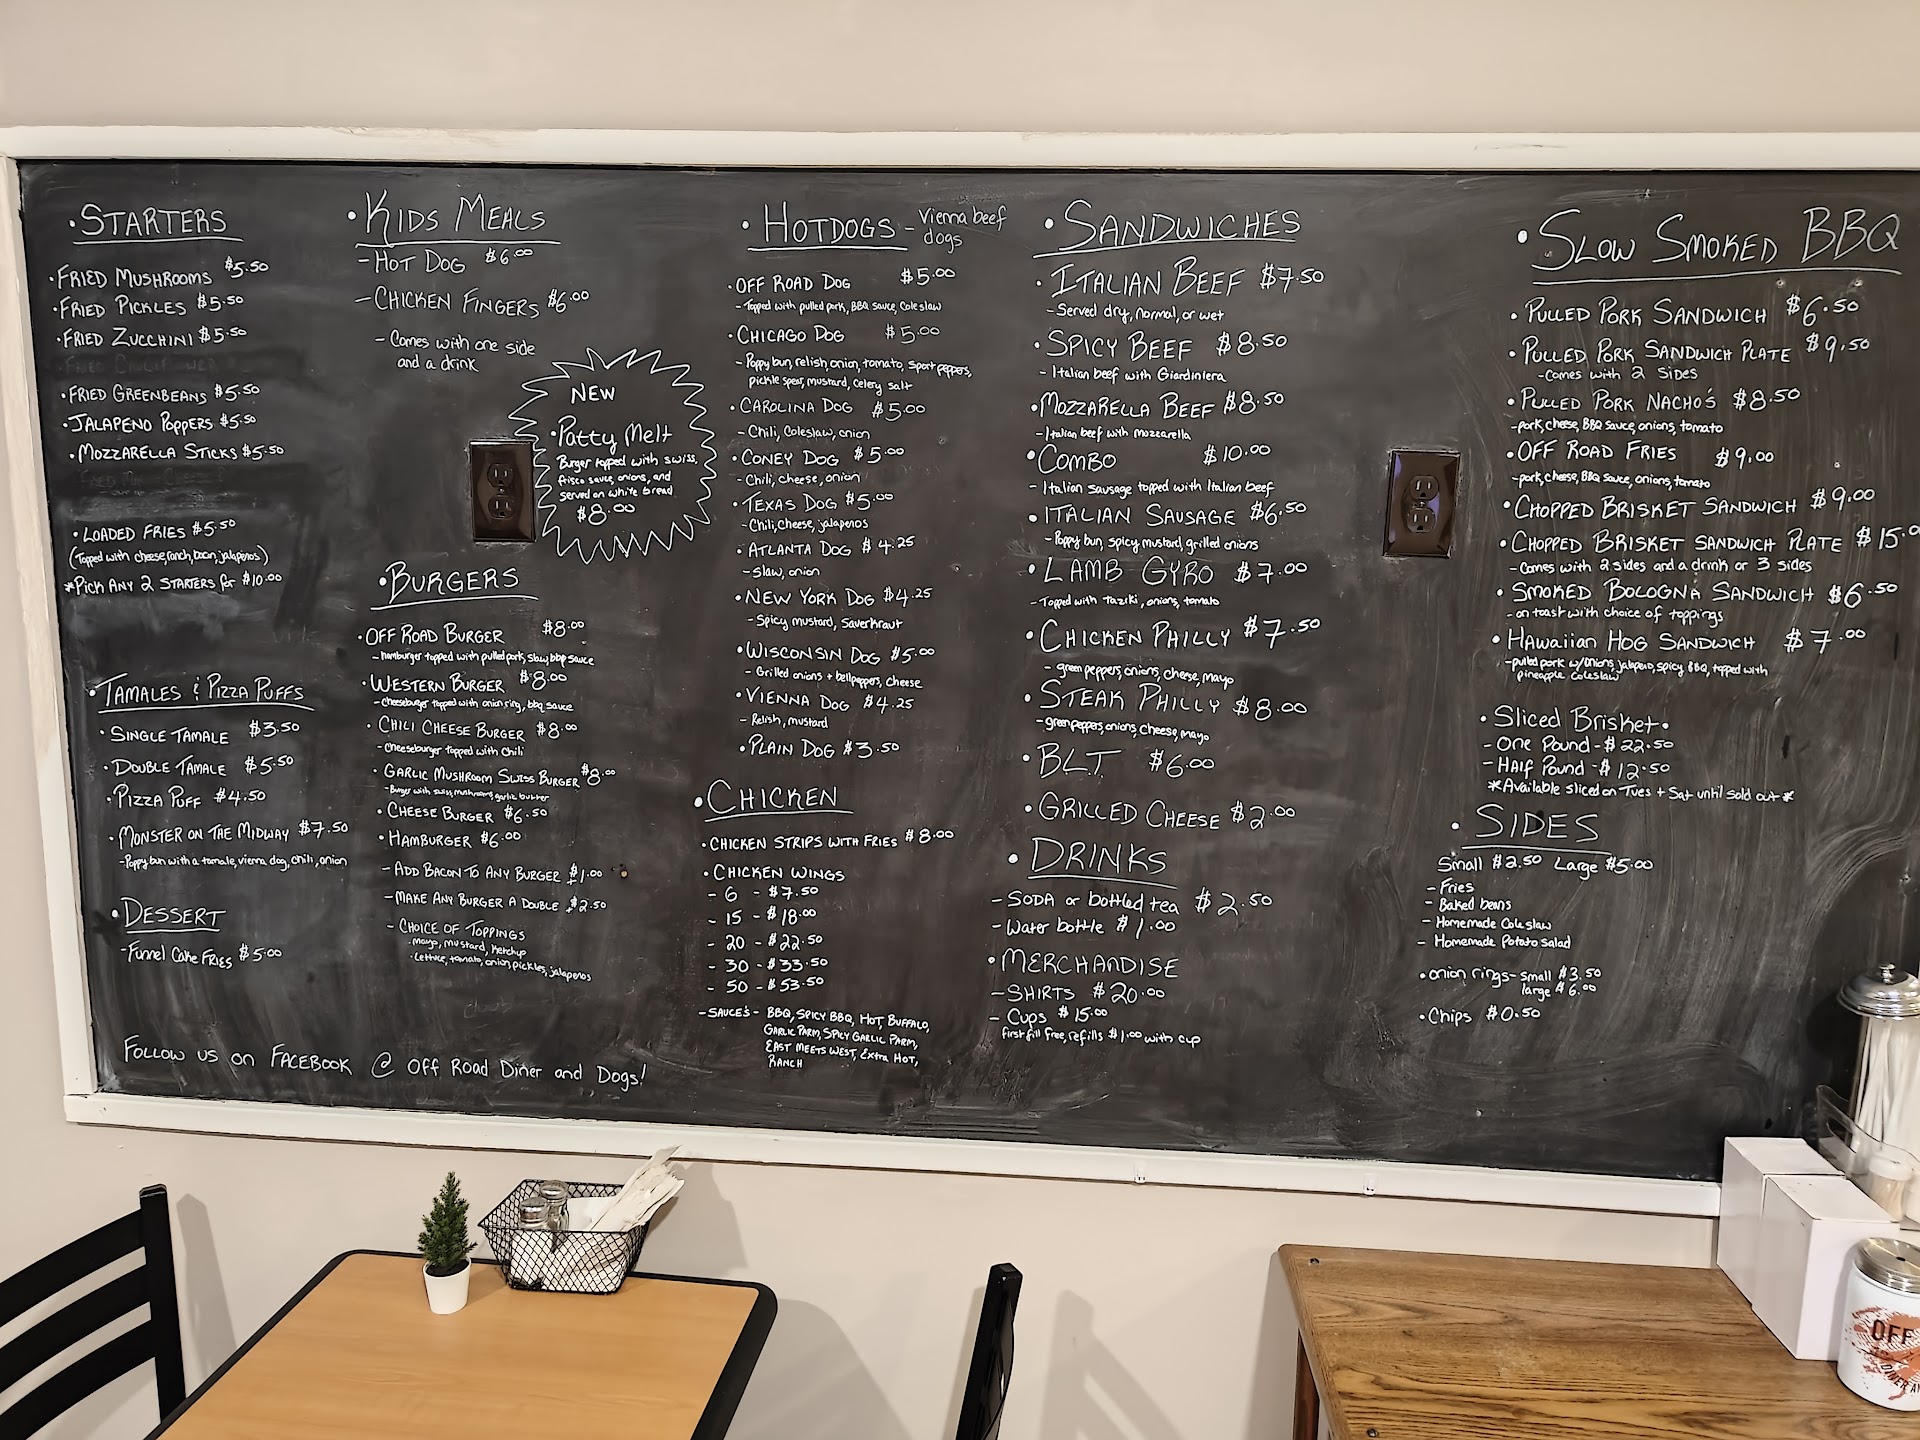 • STARTERS
• FRIED MUSHROOMS $5.50
• FRIED PICKLES $5.50
• FRIED ZUCCHINI $5.50
FRIED CAULIFLOWER
• FRIED GREENBEANS $5.50
• JALAPENO POPPERS $5.50
• MOZZARELLA STICKS $5.50
• LOADED FRIES $5.50
(Topped with cheese, ranch, bacon, jalapeños)
*PICK ANY 2 STARTERS for $10.00
• TAMALES & PIZZA PUFFS
• SINGLE TAMALE $3.50
• DOUBLE TAMALE $5.50
• PIZZA PUFF $4.50
• MONSTER ON THE MIDWAY $7.50
- Poppy bun with a tamale, vienna dog, chili, onion
• DESSERT
- Funnel Cake FRIES $5.00
FOLLOW US ON FACEBOOK @ OFF ROAD Diner and Dogs!
• KIDS MEALS
- HOT DOG $6.00
- CHICKEN FINGERS $6.00
- Comes with one side
and a drink
NEW
• Patty Melt
Burger topped with swiss,
frisco sauce, onions, and
served on white bread
$8.00
• BURGERS
• OFF ROAD BURGER $8.00
- hamburger topped with pulled pork, slaw, bbq sauce
• WESTERN BURGER $8.00
- cheeseburger topped with onion ring, bbq sauce
• CHILI CHEESE BURGER $8.00
- Cheeseburger topped with Chili
• GARLIC MUSHROOM SWISS BURGER $8.00
- Burger with swiss, mushrooms, garlic butter
• CHEESE BURGER $6.50
• HAMBURGER $6.00
- ADD BACON TO ANY BURGER $1.00
- MAKE ANY BURGER A DOUBLE +$2.50
- CHOICE OF TOPPINGS
• mayo, mustard, ketchup
• Lettuce, tomato, onion, pickles, jalapenos
• HOTDOGS - Vienna beef
dogs
• OFF ROAD DOG $5.00
- Topped with pulled pork, BBQ sauce, Coleslaw
• CHICAGO DOG $5.00
- Poppy bun, relish, onion, tomato, sport peppers,
pickle spear, mustard, celery salt
• CAROLINA DOG $5.00
- Chili, Coleslaw, onion
• CONEY DOG $5.00
- Chili, cheese, onion
• TEXAS DOG $5.00
- Chili, cheese, jalapenos
• ATLANTA DOG $4.25
- Slaw, onion
• NEW YORK DOG $4.25
- Spicy mustard, Sauerkraut
• WISCONSIN DOG $5.00
- Grilled onions + bellpeppers, cheese
• VIENNA DOG $4.25
- Relish, mustard
• PLAIN DOG $3.50
• CHICKEN
• CHICKEN STRIPS WITH FRIES $8.00
• CHICKEN WINGS
- 6 - $7.50
- 15 - $18.00
- 20 - $22.50
- 30 - $33.50
- 50 - $53.50
- SAUCE'S - BBQ, SPICY BBQ, HOT, BUFFALO,
GARLIC PARM, SPICY GARLIC PARM,
EAST MEETS WEST, Extra HOT,
RANCH
• SANDWICHES
• ITALIAN BEEF $7.50
- Served dry, normal, or wet
• SPICY BEEF $8.50
- Italian beef with Giardiniera
• MOZZARELLA BEEF $8.50
- Italian beef with mozzarella
• COMBO $10.00
- Italian sausage topped with Italian beef
• ITALIAN SAUSAGE $6.50
- Poppy bun, spicy mustard, grilled onions
• LAMB GYRO $7.00
- Topped with taziki, onions, tomato
• CHICKEN PHILLY $7.50
- green peppers, onions, cheese, mayo
• STEAK PHILLY $8.00
- green peppers, onions, cheese, mayo
• BLT $6.00
• GRILLED CHEESE $2.00
• DRINKS
- SODA or bottled tea $2.50
- Water bottle $1.00
• MERCHANDISE
- SHIRTS $20.00
- CUPS $15.00
first fill free, refills $1.00 with cup
• SLOW SMOKED BBQ
• PULLED PORK SANDWICH $6.50
• PULLED PORK SANDWICH PLATE $9.50
- Comes with 2 sides
• PULLED PORK NACHO'S $8.50
- pork, cheese, BBQ sauce, onions, tomato
• OFF ROAD FRIES $9.00
- pork, cheese, BBQ sauce, onions, tomato
• CHOPPED BRISKET SANDWICH $9.00
• CHOPPED BRISKET SANDWICH PLATE $15.0
- Comes with 2 sides and a drink or 3 sides
• SMOKED BOLOGNA SANDWICH $6.50
- on toast with choice of toppings
• HAWAIIAN HOG SANDWICH $7.00
- pulled pork w/onions, jalapeno, spicy BBQ, topped with
pineapple coleslaw
• Sliced Brisket •
- One Pound - $22.50
- Half Pound - $12.50
*Available sliced on Tues + Sat until sold out*
• SIDES
Small $2.50 Large $5.00
- Fries
- Baked beans
- Homemade Coleslaw
- Homemade Potato Salad
• onion rings - small $3.50
large $6.00
• Chips $0.50
OFF
DINER